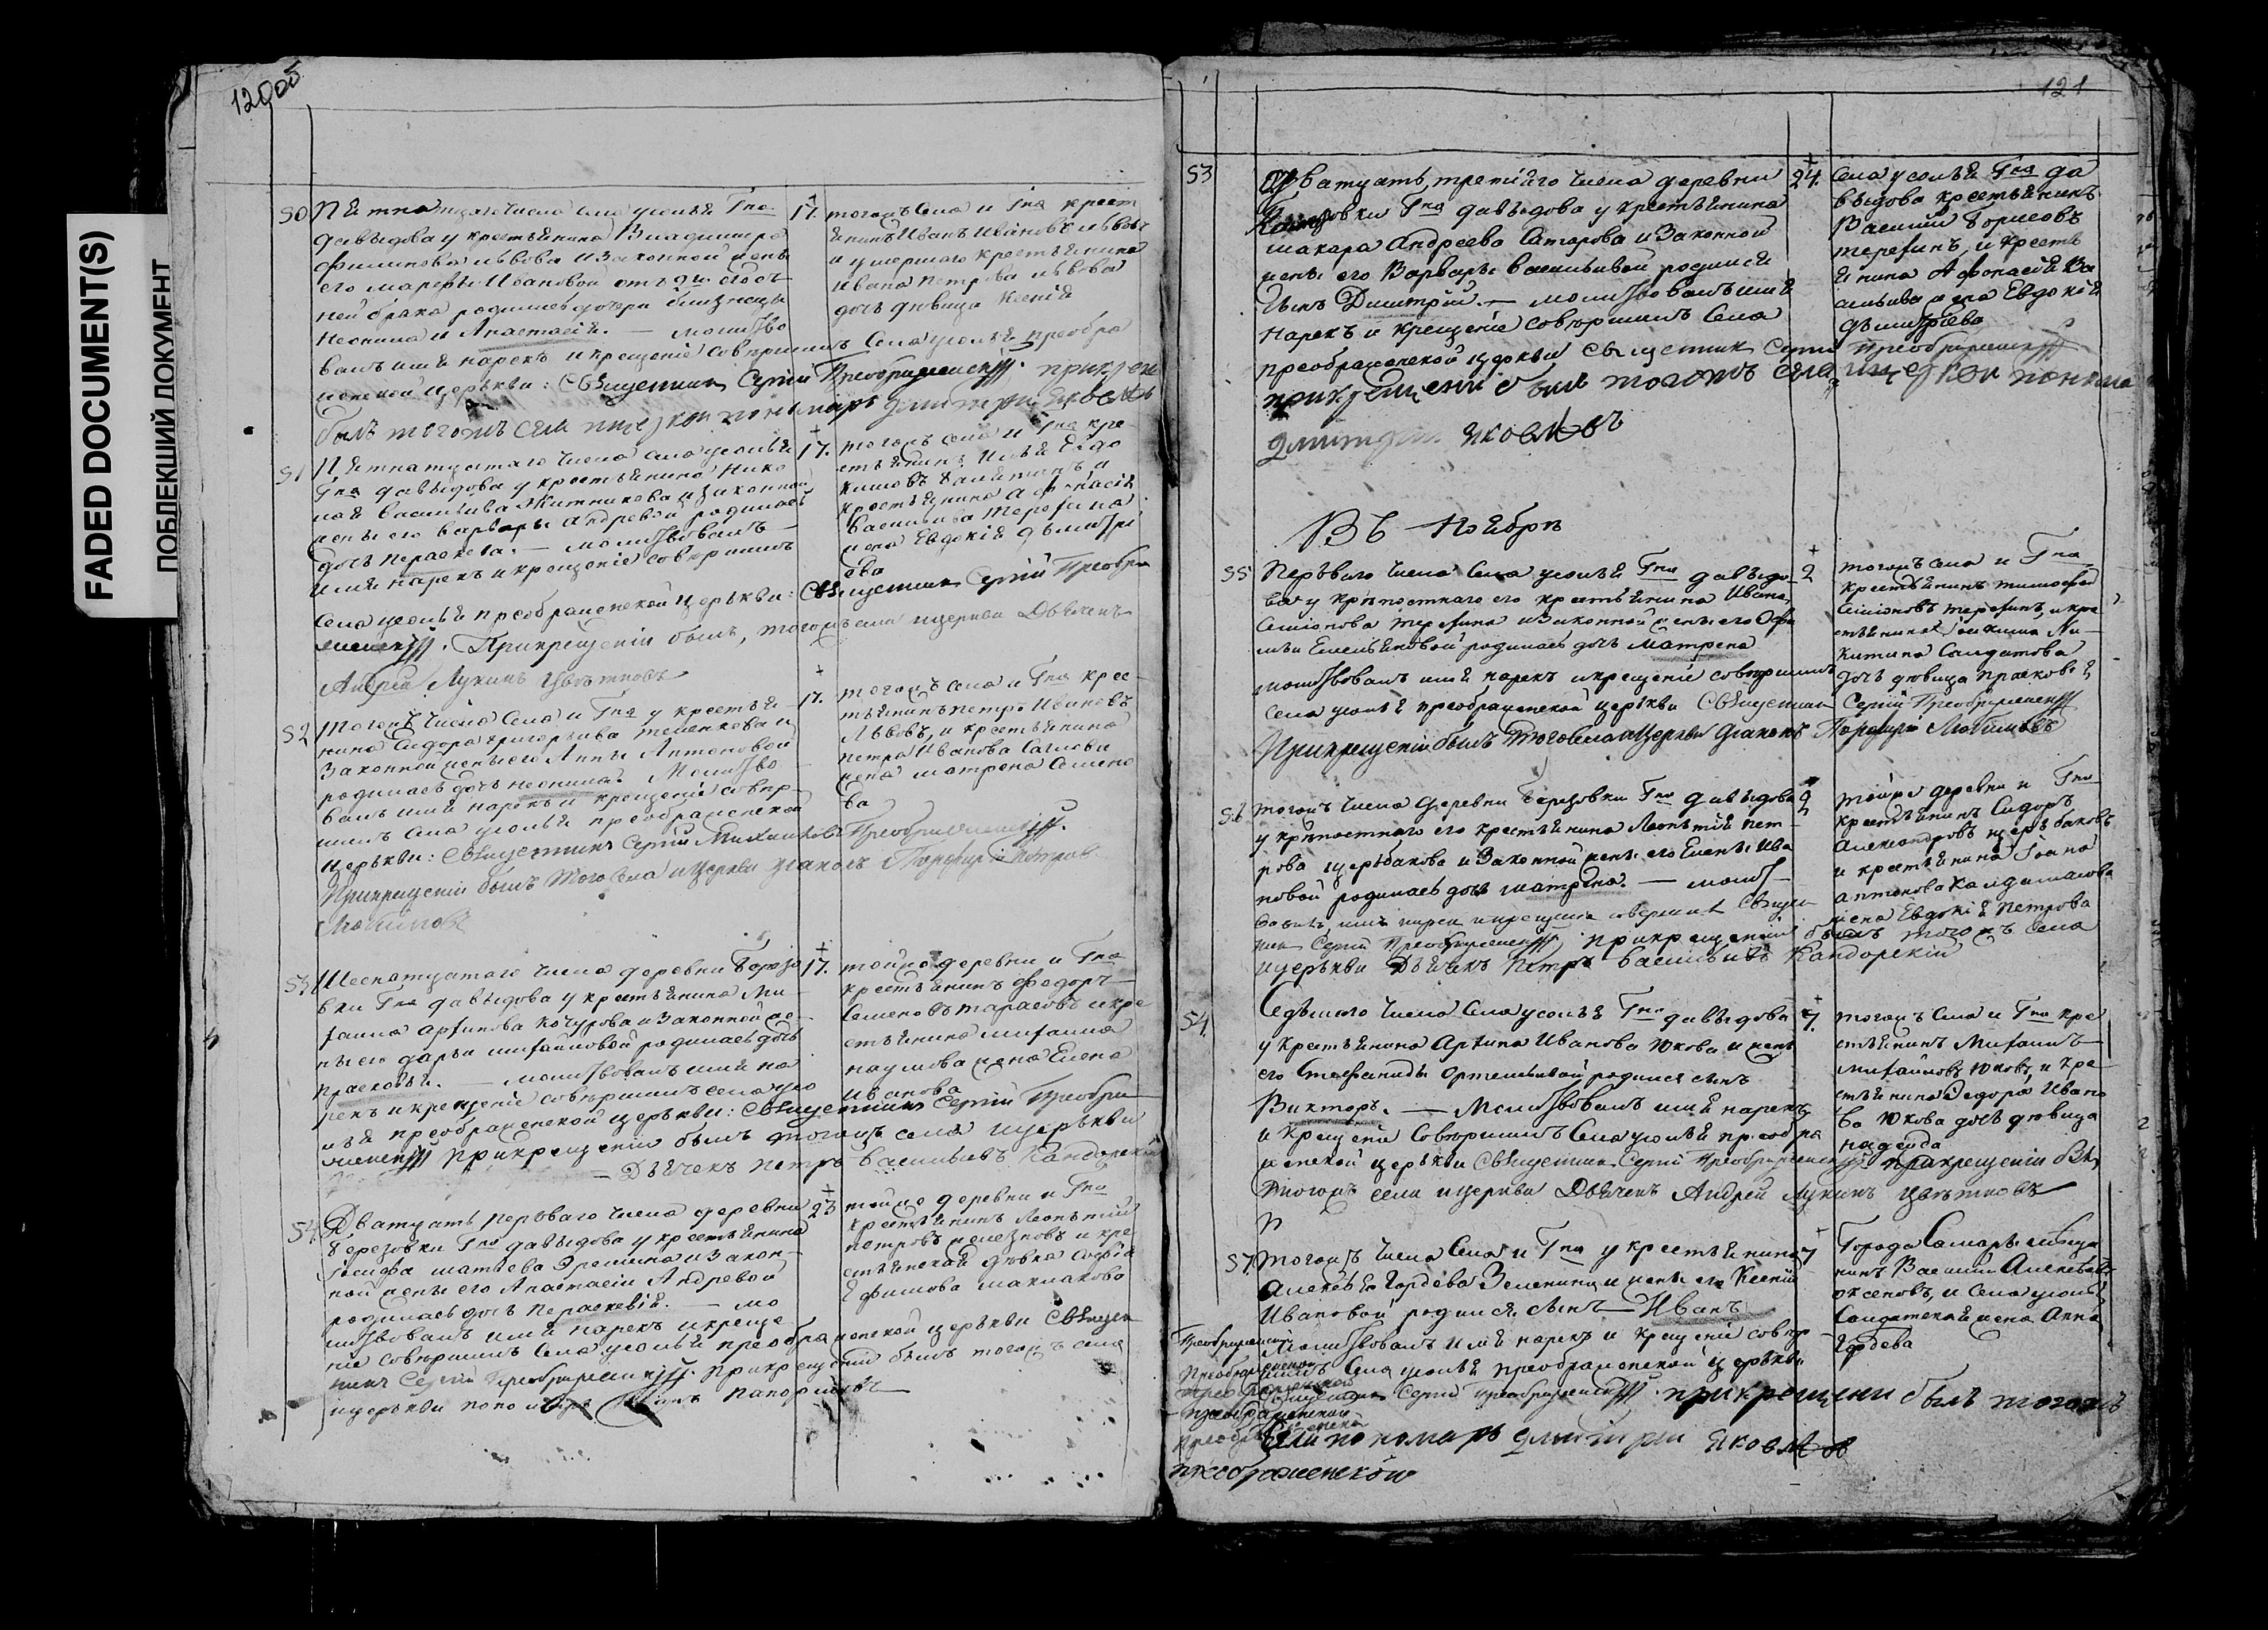 FADED DOCUMENT(S)
ПОБЛЕКШИЙ ДОКУМЕНТ
120об
50 Пятнатцатаго числа села усолья Гна
давыдова у крестьянина Владимира
Филипова львова и законной жены
его марфы Ивановой от
ней брака родились дочери близнецы
Неонила и Анастасія. — молитво
валъ имя нарекъ и крещеніе совершилъ села усолья преобра
женской церькви: Священникъ Сергій Преображенскій. при крещеніи
былъ тогожъ села и церкви пономарь дмитрей яковлевъ
17. тогожъ села и Гна крест
янинъ Иванъ Ивановъ львовъ
и умершаго крестьянина
ивана петрова львова
дочь девица Ксенія
51 Пятнатцатаго числа села усолья
Гна давыдова у крестьянина Нико
лая васильива Житникова и законной
жены его варвары Андревой родилась
дочь Параскева. — молитвовалъ
имя нарекъ и крещеніе совершилъ
села усолья преображенской церькви: Священникъ Сергій Преобра
женскій. При крещеніи былъ, тогожъ села и церкви Дьячекъ
Андрей Лукинъ Цветковъ
17. тогожъ села и Гна кре
стьянинъ Илья Евдо
кимовъ и
крестьянина Афонасія
васильива Терехина
жена Евдокія дьмитрі
ева
52 Тогожъ числа села и Гна у крестья
нина Сидора григорьива теленкова и
законной жены его Анны Антоновой
родилась дочь неонила. Молитво
валъ имя нарекъ и крещеніе совер
шилъ села усолья преображенской
церькви: Священникъ Сергій Михайловъ Преображенскій.
При крещеніи былъ того села и церкви діаконъ Порфирій Петровъ
Любимовъ
17. тогожъ села и Гна крес
тьянинъ петръ Ивановъ
Львовъ, и крестьянина
петра Иванова
жена матрена Семено
ва
53 Шеснатцатаго числа деревни Березо
вки Гна давыдова у крестьянина Ми
хаила архипова Кочурова и законной же
ны его дарьи михайловой родилась дочь
прасковья. — молитвовалъ имя на
рекъ и крещеніе совершилъ села усо
лья преображенской церькви: Священникъ Сергій Преобра
женскій При крещеніи былъ тогожъ села и церькви
— Дьячекъ петръ васильевъ Кандорскій
17. тойже деревни и Гна
крестьянинъ Федоръ
Семеновъ тарасовъ и кре
стьянина михаила
наумова жена Елена
иванова
54 Дватцать перваго числа деревни
березовки Гна давыдова у крестьянина
Іосифа матвева Еремина и закон
ной жены его Анастасіи Андревой
родилась дочь Параскевія. — мо
литвовалъ имя нарекъ и креще
ніе совершилъ села усолья преображенской церькви Священ
никъ Сергій Преображенскій. При крещеніи былъ тогожъ села
и церькви пономарь
23 тойже деревни и Гна
крестьянинъ Леонтій
петровъ железновъ и кре
стьянская девка Софья
Ефимова маклакова
121
53 Дватцать третіяго числа деревни
Гна давыдова у крестьянина
макара Андреева Сатарова и законной
жены его Варвары васильивой родился
сынъ Димитрій. — молитвовалъ имя
нарекъ и крещеніе совершилъ села
преображенской церкви священникъ Сергій Преображенскій
при крещеніи былъ тогожъ села и церкви понома
дмитрей яковлевъ
24. села усолья Гна да
выдова крестьянинъ
Василій Борисовъ
терехинъ, и крестъ
янина Афонасія Ва
сильива жена Евдокія
дьмитріева
Въ Ноябре
55 Перьваго числа села усолья Гна давыдо
ва у крепостнаго его крестьянина Ивана
Симіонова терехина и законной жены его Офи
мьи Емельяновой родилась дочь матрена
молитвовалъ имя нарекъ и крещеніе совершилъ
села усолья преображенской церькви Священникъ Сергій Преображенскій
При крещеніи былъ того села и церкви діаконъ Порфирій Любимовъ
2 тогожъ села и Гна
крестьянинъ тимофей
Симіоновъ терехинъ, и кре
стьянина Ни
китина Салдатова
дочь девица прасковья
56 тогожъ числа деревни березовки Гна давыдова
у крепостнаго его крестьянина Леонтія пет
рова щербакова и законной жены его Елены Ива
новой родилась дочь матрена. — молит
вовалъ имя нарекъ и крещеніе совершилъ Священ
никъ Сергій Преображенскій при крещеніи былъ тогожъ села
и церькви дьячекъ петръ васильевъ Кандорскій
2 тойже деревни и Гна
крестьянинъ Сидоръ
Александровъ щербаковъ
и крестьянина Іоана
антонова
жена Евдокія Петрова
54. Седьмаго числа села усолья Гна давыдова
у крестьянина Архипа Иванова Юкова и жены
его Стефаниды Ортемьивой родился сынъ
Викторъ. — Молитвовалъ имя нарекъ
и крещеніе совершилъ села усолья преобра
женской церькви Священникъ Сергій Преображенскій при крещеніи былъ
тогожъ села и церкви Дьячекъ Андрей Лукинъ Цветковъ
7. тогожъ села и Гна кре
стьянинъ Михаилъ
михайловъ Юковъ, и кре
стьянина Федора Ивано
ва Юкова дочь девица
надежда
57. тогожъ числа села и Гна у крестьянина
Алексея Гордева Зеленина и жены его Ксеніи
Ивановой родился сынъ — Иванъ
Молитвовалъ имя нарекъ и крещеніе совер
шилъ села усолья преображенской церькви
Священникъ Сергій Преображенскій. при крещени былъ тогожъ
села пономарь дмитрей яковлевъ
7 Города Самары мещя
нинъ Василій Алексеевъ
Оксеновъ, и села усолья
Салдатская жена Анна
Гордева
преображенской